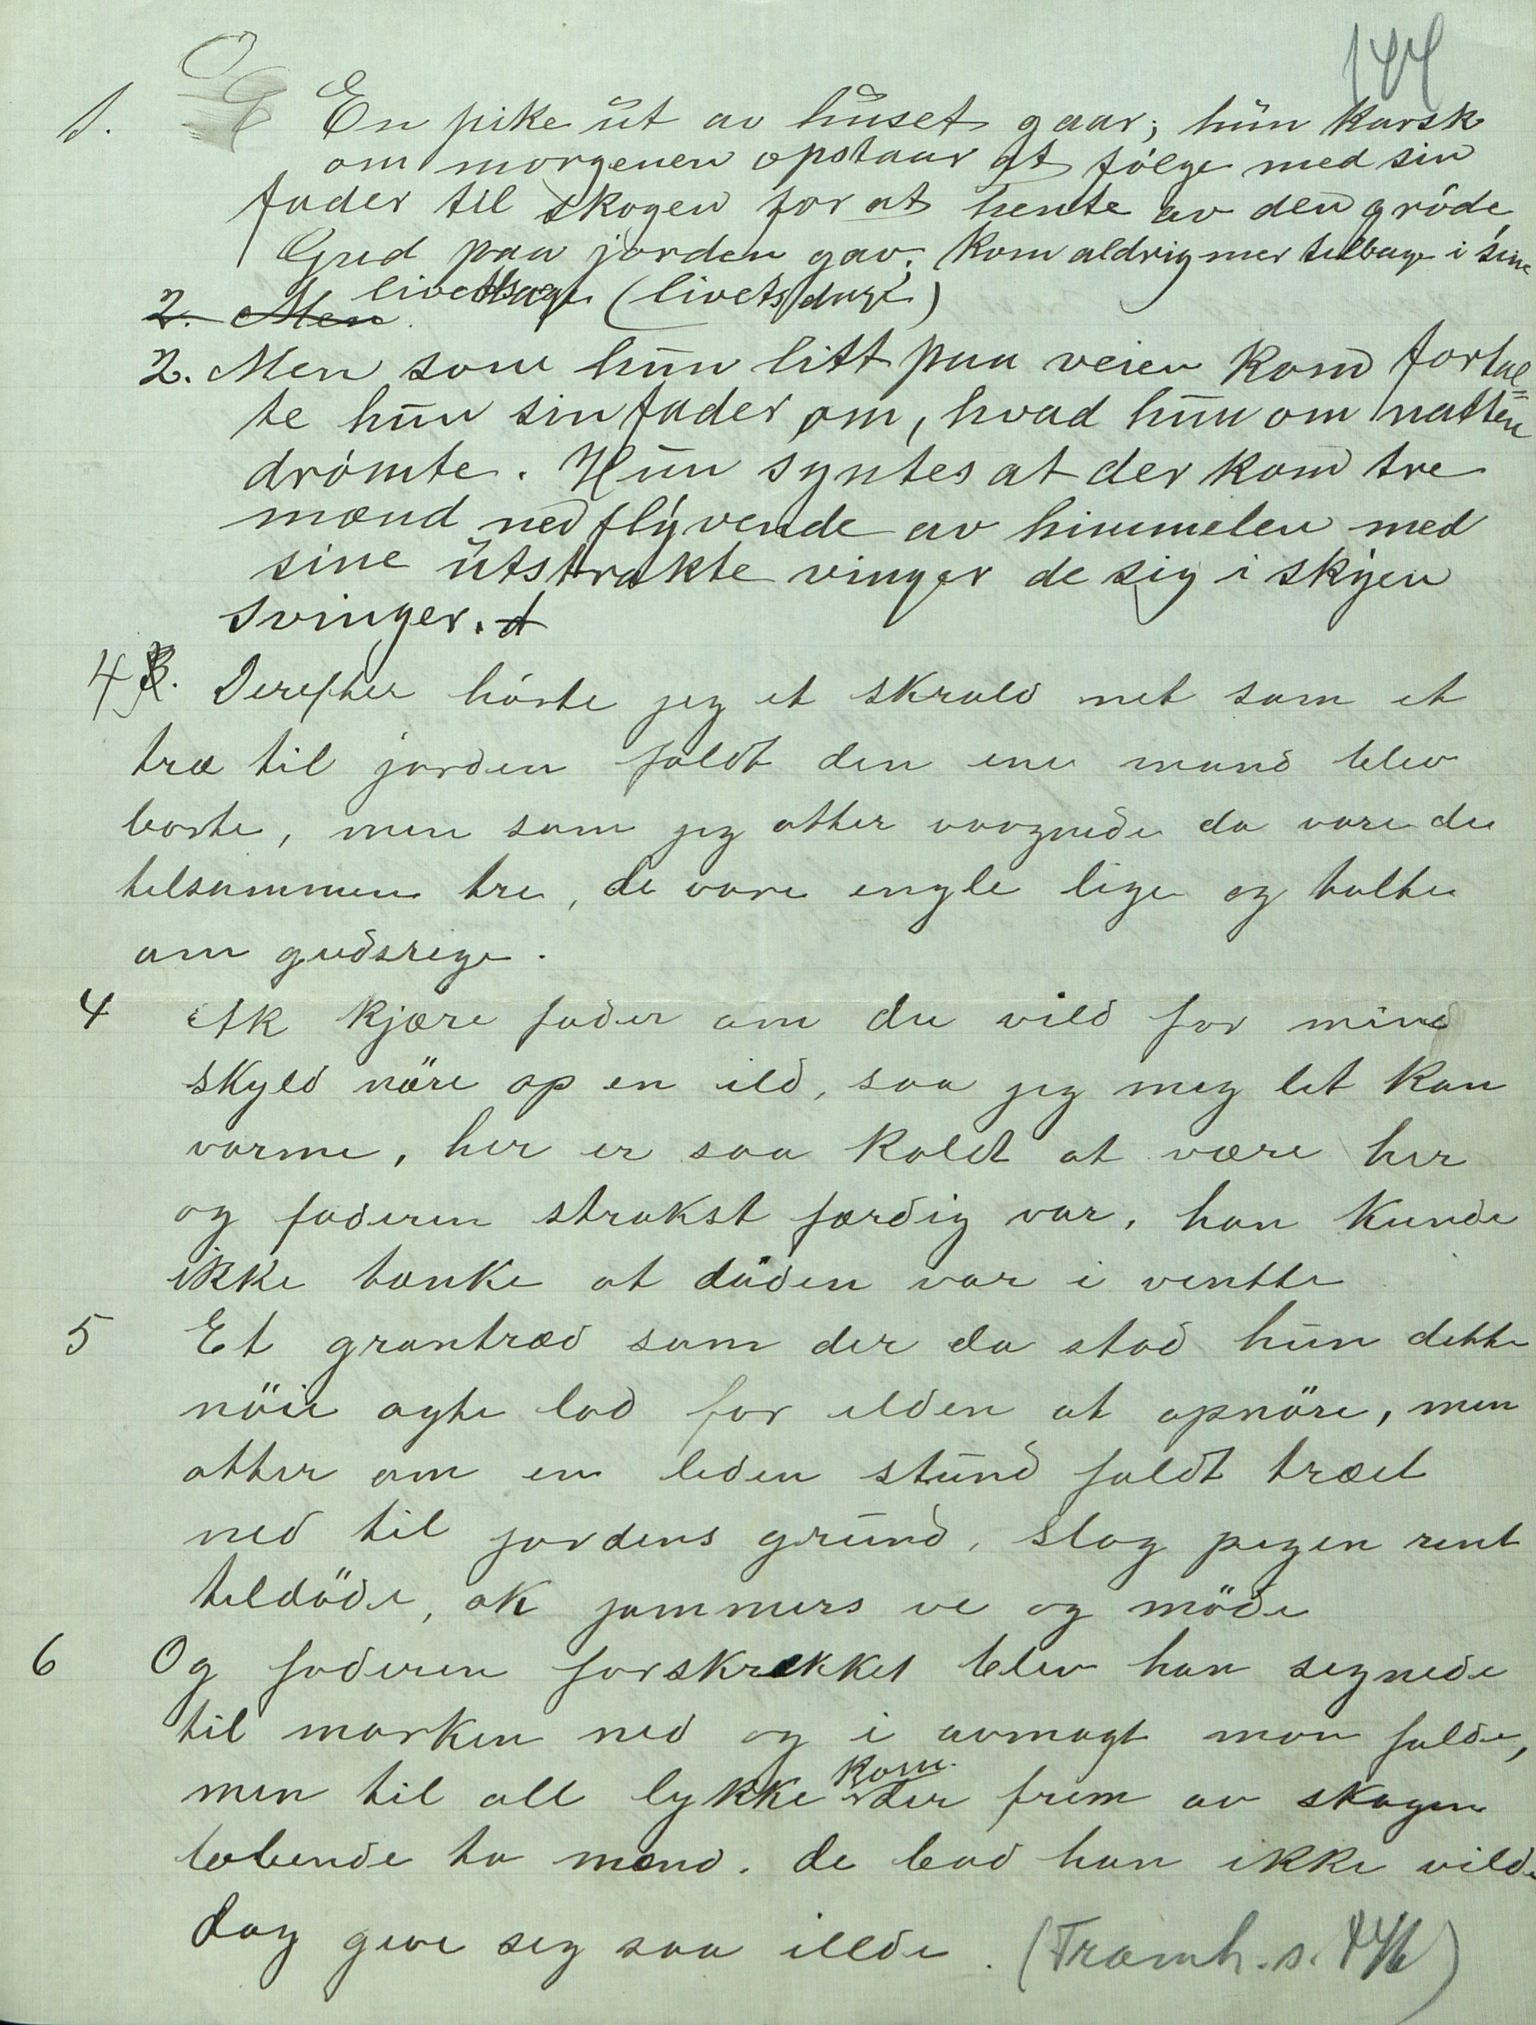 144
1. En pike ut av huset gaar; hun karsk
om morgenen opstaar at følge med sin
fader til skogen for at hente av den grøde,
Gud paa jorden gav; kom aldrig mer tilbage i sine
livetsdage (livets dage)
2. Men
2. Men som hun litt paa veien kom fortal=
te hun sin fader om, hvad hun om natten
drømte. Hun syntes at der kom tre
mænd ned flyvende av himmelen med
sine utstrakte vinger de sig i skyen
svinger.
4 3. Derefter hörte jeg et skrald net som et
træ til jorden faldt den ene mand blev
borte, men som jeg atter vaagnede da vare de
tilsammen tre, de vare engle lige og talte
om gudsrige.
4 Ak kjære fader om du vild for min
skyld nöre op en ild, saa jeg mig let kan
varme, her er saa koldt at være her
og faderen strakst færdig var, han kunde
ikke tænke at döden var i ventte
5 Et grantræd som der da stod hun dette
nöie agte lod for ilden at opnöre, men
atter om en liden stund faldt træet
ned til jordens grund, slog pigen rent
tildöde, ak jammers ve og möde
6 Og faderen forskrækket blev han segnede
til marken ned og i avmagt mon falde,
men til all lykke kom der frem av skogen
löbende to mænd. de bad han ikke vilde
dog give sig saa illde. (Framh. s. 146)